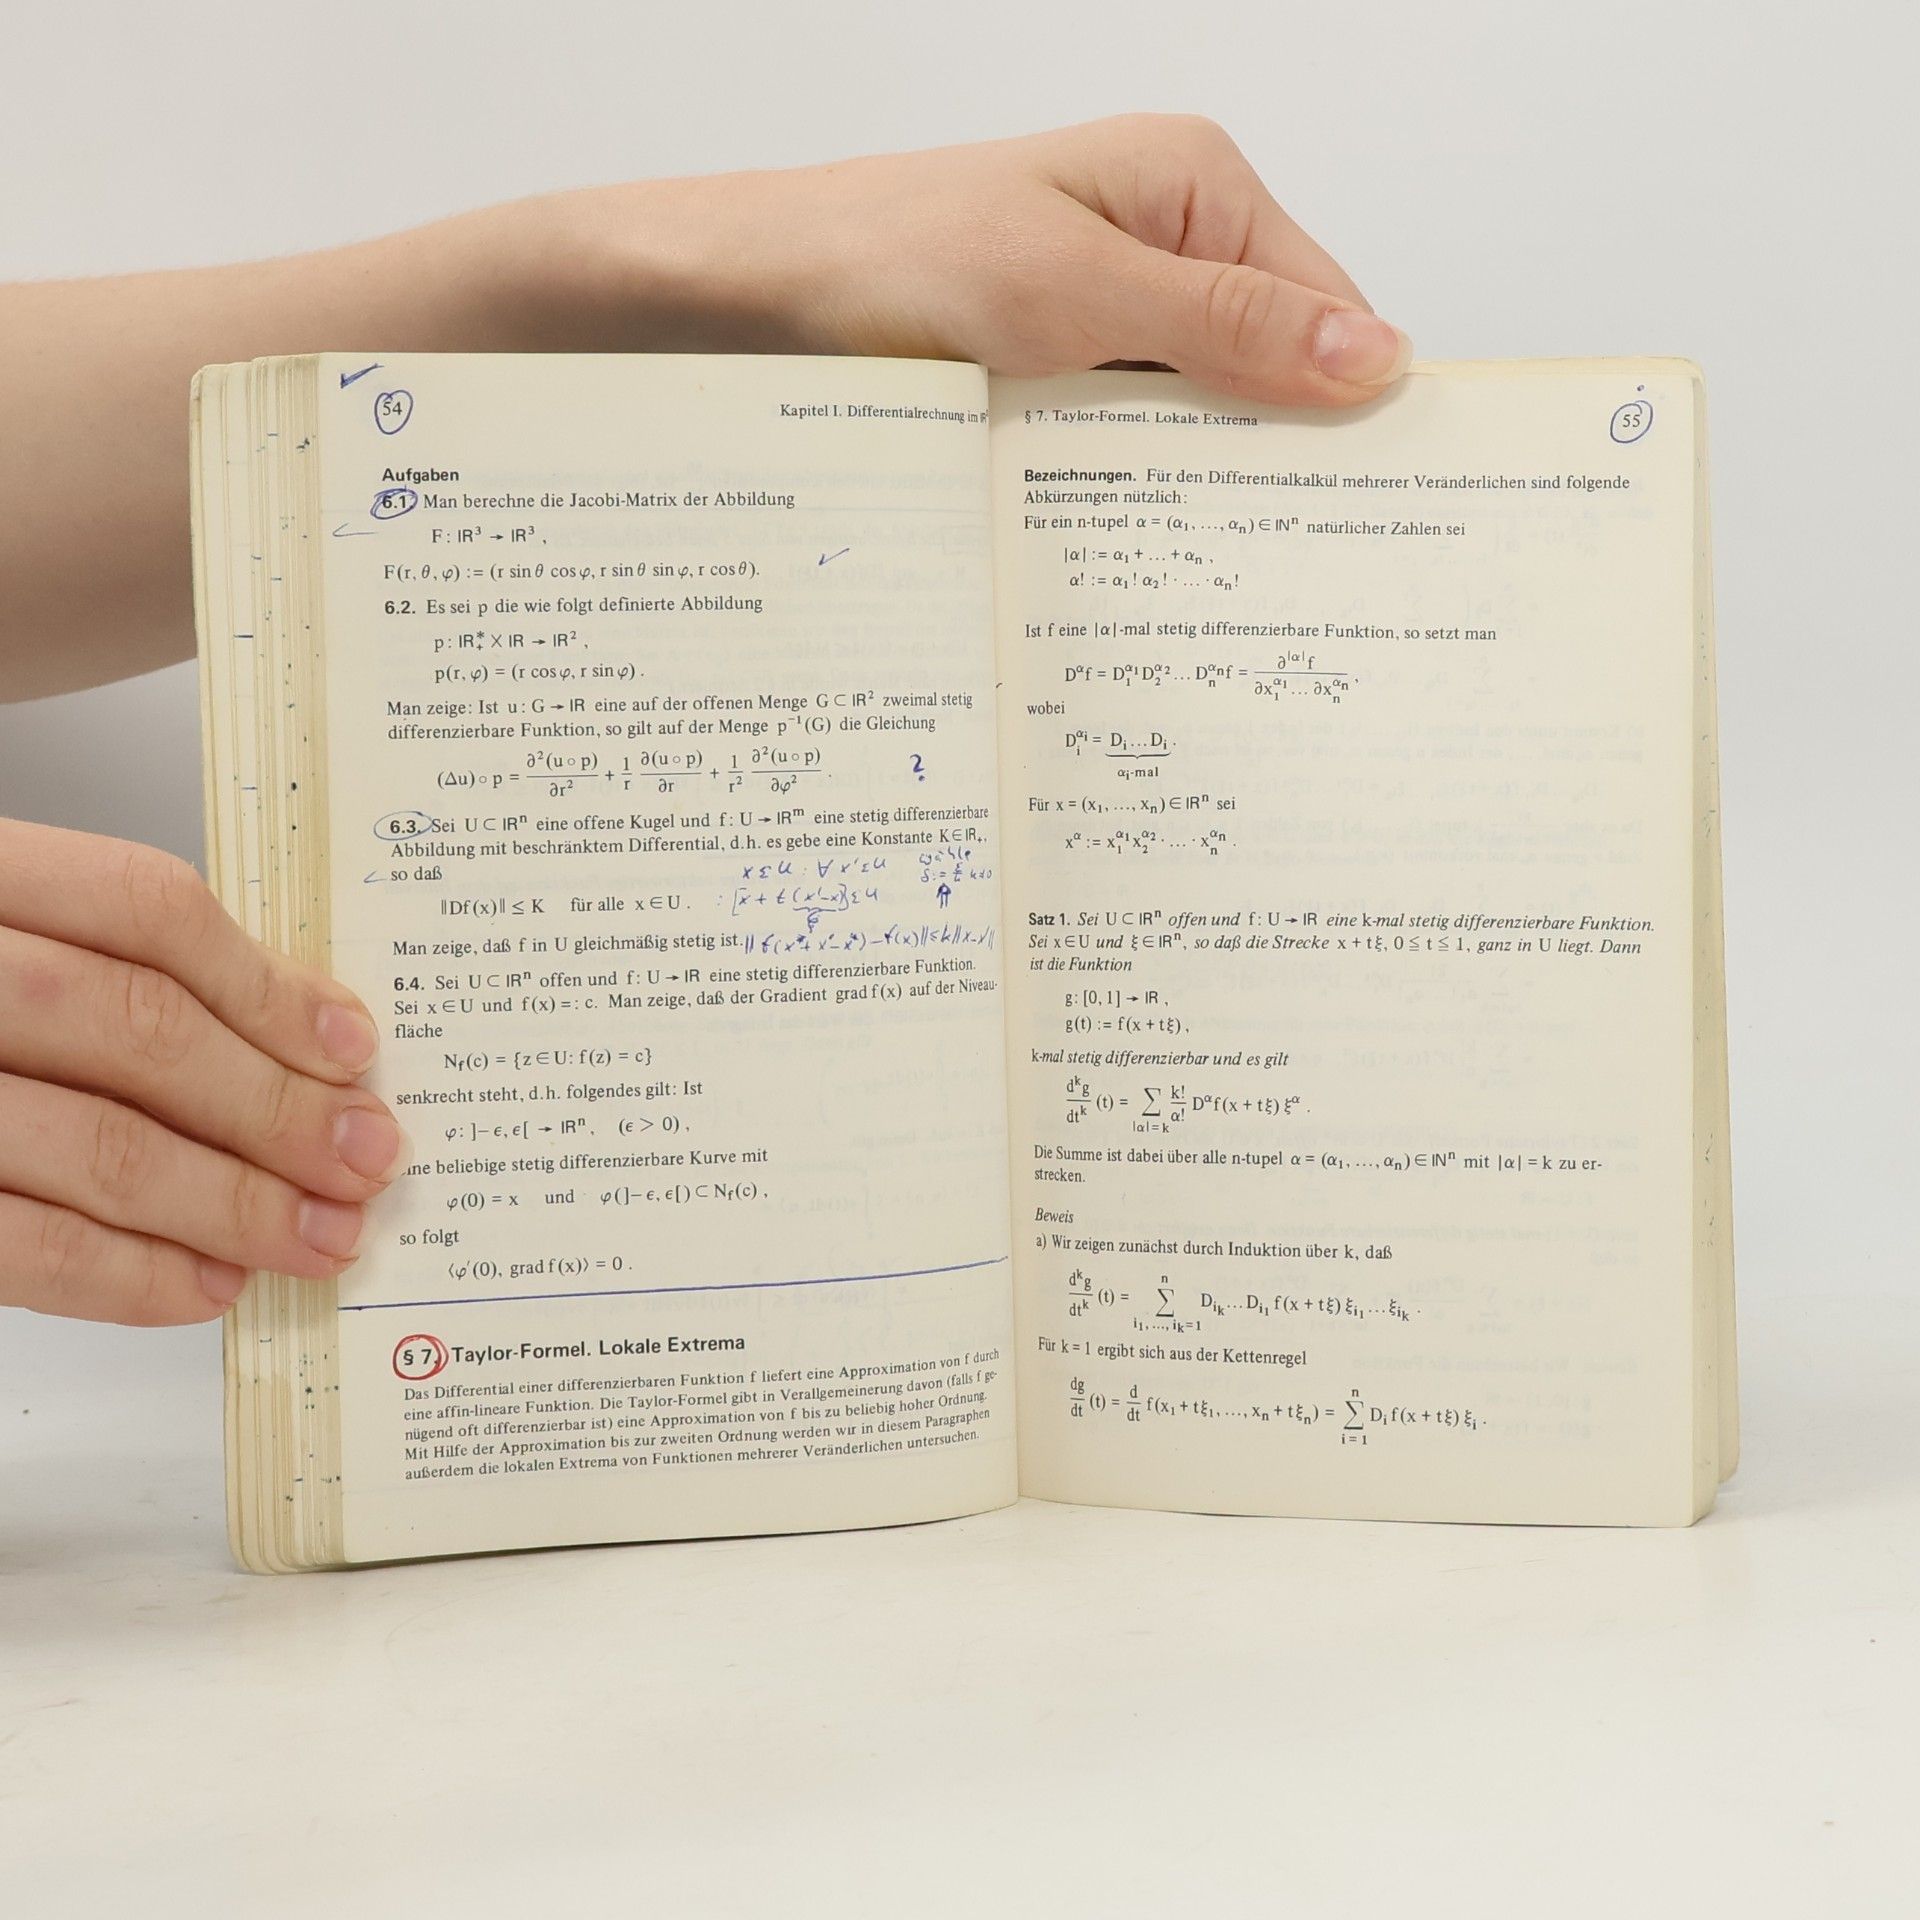 54
Kapitel I. Differentialrechnung im IR
Aufgaben
6.1. Man berechne die Jacobi-Matrix der Abbildung
F: IR³ → IR³ ,
F(r, θ, φ) := (r sin θ cos φ, r sin θ sin φ, r cos θ).
6.2. Es sei p die wie folgt definierte Abbildung
p: IR₊* × IR → IR² ,
p(r, φ) = (r cos φ, r sin φ) .
Man zeige: Ist u: G → IR eine auf der offenen Menge G ⊂ IR² zweimal stetig
differenzierbare Funktion, so gilt auf der Menge p⁻¹(G) die Gleichung
(Δu)∘p = ∂²(u∘p)/∂r² + 1/r ∂(u∘p)/∂r + 1/r² ∂²(u∘p)/∂φ² . ?
6.3. Sei U ⊂ IRⁿ eine offene Kugel und f: U → IRᵐ eine stetig differenzierbare
Abbildung mit beschränktem Differential, d.h. es gebe eine Konstante K ∈ IR₊,
so daß
x ε U : ∀ x' ε U
‖Df(x)‖ ≤ K für alle x ∈ U. : [x + t(x'-x)] ε U
Man zeige, daß f in U gleichmäßig stetig ist.
6.4. Sei U ⊂ IRⁿ offen und f: U → IR eine stetig differenzierbare Funktion.
Sei x ∈ U und f(x) =: c. Man zeige, daß der Gradient grad f(x) auf der Niveau-
fläche
N_f(c) = {z ∈ U: f(z) = c}
senkrecht steht, d.h. folgendes gilt: Ist
φ: ]−ε, ε[ → IRⁿ, (ε > 0),
ine beliebige stetig differenzierbare Kurve mit
φ(0) = x und φ(]−ε, ε[) ⊂ N_f(c) ,
so folgt
⟨φ'(0), grad f(x)⟩ = 0 .
§ 7. Taylor-Formel. Lokale Extrema
Das Differential einer differenzierbaren Funktion f liefert eine Approximation von f durch
eine affin-lineare Funktion. Die Taylor-Formel gibt in Verallgemeinerung davon (falls f ge-
nügend oft differenzierbar ist) eine Approximation von f bis zu beliebig hoher Ordnung.
Mit Hilfe der Approximation bis zur zweiten Ordnung werden wir in diesem Paragraphen
außerdem die lokalen Extrema von Funktionen mehrerer Veränderlichen untersuchen.
§ 7. Taylor-Formel. Lokale Extrema
55
Bezeichnungen. Für den Differentialkalkül mehrerer Veränderlichen sind folgende
Abkürzungen nützlich:
Für ein n-tupel α = (α₁, ..., αₙ) ∈ INⁿ natürlicher Zahlen sei
|α| := α₁ + ... + αₙ ,
α! := α₁! α₂! · ... · αₙ!
Ist f eine |α|-mal stetig differenzierbare Funktion, so setzt man
D^α f = D₁^α₁ D₂^α₂ ... Dₙ^αₙ f = ∂^|α| f / ∂x₁^α₁ ... ∂xₙ^αₙ ,
wobei
Dᵢ^αᵢ = Dᵢ ... Dᵢ .
αᵢ-mal
Für x = (x₁, ..., xₙ) ∈ IRⁿ sei
x^α := x₁^α₁ x₂^α₂ · ... · xₙ^αₙ .
Satz 1. Sei U ⊂ IRⁿ offen und f: U → IR eine k-mal stetig differenzierbare Funktion.
Sei x ∈ U und ξ ∈ IRⁿ, so daß die Strecke x + tξ, 0 ≤ t ≤ 1, ganz in U liegt. Dann
ist die Funktion
g: [0, 1] → IR ,
g(t) := f(x + tξ) ,
k-mal stetig differenzierbar und es gilt
dᵏg/dtᵏ (t) = Σ_{|α|=k} k!/α! D^α f(x + tξ) ξ^α .
Die Summe ist dabei über alle n-tupel α = (α₁, ..., αₙ) ∈ INⁿ mit |α| = k zu er-
strecken.
Beweis
a) Wir zeigen zunächst durch Induktion über k, daß
dᵏg/dtᵏ (t) = Σ_{i₁, ..., iₖ=1}^n D_{iₖ} ... D_{i₁} f(x + tξ) ξ_{i₁} ... ξ_{iₖ} .
Für k = 1 ergibt sich aus der Kettenregel
dg/dt (t) = d/dt f(x₁ + tξ₁, ..., xₙ + tξₙ) = Σ_{i=1}^n Dᵢ f(x + tξ) ξᵢ .